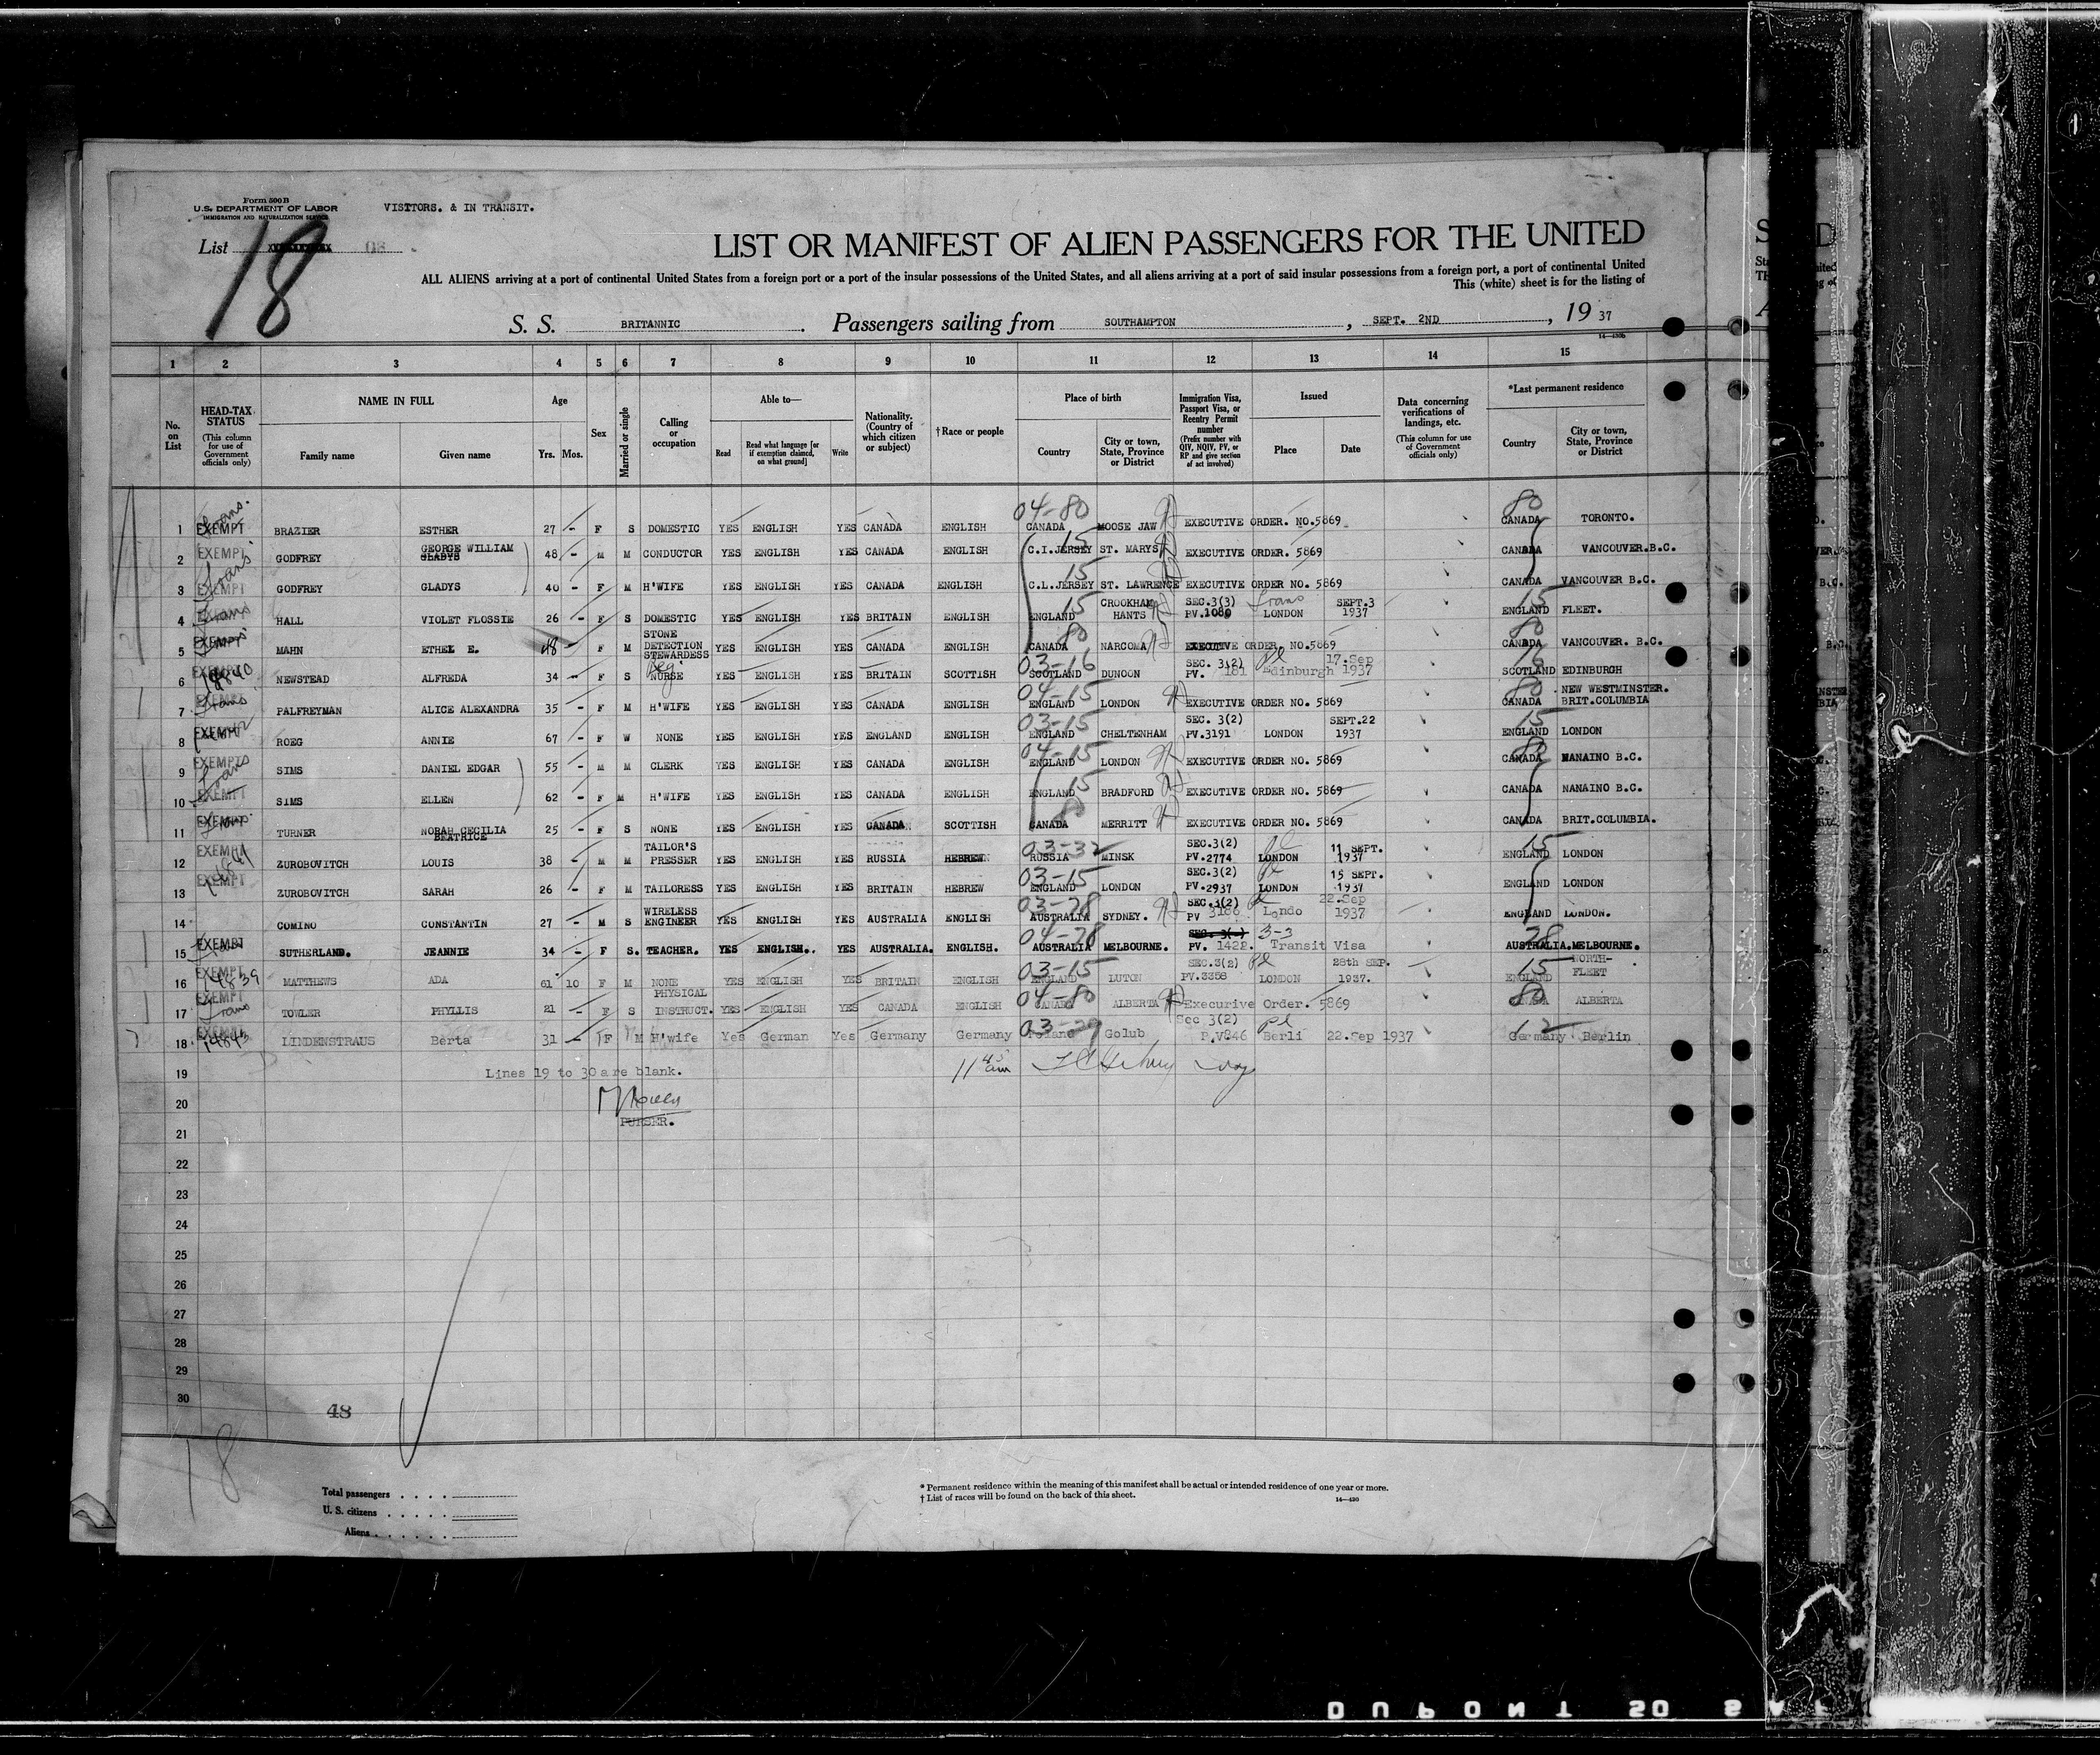 Form 500 B
U.S. DEPARTMENT OF LABOR
IMMIGRATION AND NATURALIZATION SERVICE
VISITORS. & IN TRANSIT.
List 08
18
LIST OR MANIFEST OF ALIEN PASSENGERS FOR THE UNITED
ALL ALIENS arriving at a port of continental United States from a foreign port or a port of the insular possessions of the United States, and all aliens arriving at a port of said insular possessions from a foreign port, a port of continental United
This (white) sheet is for the listing of
S. S. BRITANNIC. Passengers sailing from SOUTHAMPTON, SEPT. 2ND, 19 37
1 2 3 4 5 6 7 8 9 10 11 12 13 14 15
No. on List
HEAD-TAX STATUS (This column for use of Government officials only)
NAME IN FULL
Family name Given name
Age
Yrs. Mos.
Sex
Married or single
Calling or occupation
Able to—
Read Read what language [or if exemption claimed, on what ground] Write
Nationality. (Country of which citizen or subject)
†Race or people
Place of birth
Country City or town, State, Province or District
Immigration Visa, Passport Visa, or Reentry Permit number (Prefix number with QIV, NQIV, PV, or RP and give section of act involved)
Issued
Place Date
Data concerning verifications of landings, etc. (This column for use of Government officials only)
*Last permanent residence
Country City or town, State, Province or District
1 EXEMPT BRAZIER ESTHER 27 - F S DOMESTIC YES ENGLISH YES CANADA ENGLISH 04-80 CANADA MOOSE JAW EXECUTIVE ORDER. NO.5869 80 CANADA TORONTO.
2 EXEMPT GODFREY GEORGE WILLIAM GLADYS 48 - M M CONDUCTOR YES ENGLISH YES CANADA ENGLISH 15 C.I.JERSEY ST. MARYS EXECUTIVE ORDER. 5869 CANADA VANCOUVER.B.C.
3 EXEMPT GODFREY GLADYS 40 - F M H'WIFE YES ENGLISH YES CANADA ENGLISH 15 C.L.JERSEY ST. LAWRENCE EXECUTIVE ORDER NO. 5869 CANADA VANCOUVER B.C.
4 EXEMPT HALL VIOLET FLOSSIE 26 - F S DOMESTIC YES ENGLISH YES BRITAIN ENGLISH 15 ENGLAND CROOKHAM HANTS SEC.3(3) PV.1080 Trans LONDON SEPT.3 1937 15 ENGLAND FLEET.
5 EXEMPT MAHN ETHEL E. 48 - F M STONE DETECTION STEWARDESS YES ENGLISH YES CANADA ENGLISH 80 CANADA NARCOMA EXECUTIVE ORDER NO.5869 80 CANADA VANCOUVER. B.C.
6 EXEMPT 14840 NEWSTEAD ALFREDA 34 - F S Reg. NURSE YES ENGLISH YES BRITAIN SCOTTISH 03-16 SCOTLAND DUNOON SEC. 3(2) PV. 181 Pl Edinburgh 17.Sep 1937 16 SCOTLAND EDINBURGH
7 EXEMPT Trans PALFREYMAN ALICE ALEXANDRA 35 - F M H'WIFE YES ENGLISH YES CANADA ENGLISH 04-15 ENGLAND LONDON EXECUTIVE ORDER NO. 5869 80 CANADA NEW WESTMINSTER. BRIT.COLUMBIA
8 EXEMPT ROEG ANNIE 67 - F W NONE YES ENGLISH YES ENGLAND ENGLISH 03-15 ENGLAND CHELTENHAM SEC. 3(2) PV.3191 LONDON SEPT.22 1937 15 ENGLAND LONDON
9 EXEMPT SIMS DANIEL EDGAR 55 - M M CLERK YES ENGLISH YES CANADA ENGLISH 04-15 ENGLAND LONDON EXECUTIVE ORDER NO. 5869 80 CANADA NANAINO B.C.
10 EXEMPT SIMS ELLEN 62 - F M H'WIFE YES ENGLISH YES CANADA ENGLISH 15 ENGLAND BRADFORD EXECUTIVE ORDER NO. 5869 CANADA NANAINO B.C.
11 EXEMPT TURNER NORAH CECILIA BEATRICE 25 - F S NONE YES ENGLISH YES CANADA SCOTTISH 80 CANADA MERRITT EXECUTIVE ORDER NO. 5869 CANADA BRIT.COLUMBIA.
12 EXEMPT ZUROBOVITCH LOUIS 38 - M M TAILOR'S PRESSER YES ENGLISH YES RUSSIA HEBREW 03-32 RUSSIA MINSK SEC.3(2) PV.2774 Pl LONDON 11 SEPT. 1937 15 ENGLAND LONDON
13 EXEMPT ZUROBOVITCH SARAH 26 - F M TAILORESS YES ENGLISH YES BRITAIN HEBREW 03-15 ENGLAND LONDON SEC.3(2) PV.2937 Pl LONDON 15 SEPT. 1937 ENGLAND LONDON
14 COMINO CONSTANTIN 27 - M S WIRELESS ENGINEER YES ENGLISH YES AUSTRALIA ENGLISH 03-78 AUSTRALIA SYDNEY. SEC.3(2) PV 3186 Pl Londo 22.Sep 1937 ENGLAND LONDON.
15 EXEMPT SUTHERLAND. JEANNIE 34 - F S. TEACHER. YES ENGLISH. YES AUSTRALIA. ENGLISH. 04-78 AUSTRALIA MELBOURNE. 3-3 PV. 1422. Transit Visa 78 AUSTRALIA.MELBOURNE.
16 EXEMPT 14839 MATTHEWS ADA 61 10 F M NONE YES ENGLISH YES BRITAIN ENGLISH 03-15 ENGLAND LUTON SEC.3(2) PV.3358 Pl LONDON 28th SEP. 1937. 15 ENGLAND NORTH-FLEET
17 EXEMPT Trans TOWLER PHYLLIS 21 - F S PHYSICAL INSTRUCT. YES ENGLISH YES CANADA ENGLISH 04-80 CANADA ALBERTA Execurive Order. 5869 80 CANADA ALBERTA
18 EXEMPT 14843 LINDENSTRAUS Berta 31 - F M H'wife Yes German Yes Germany Germany 03-29 Poland Golub Sec 3(2) P.V846 Pl Berli 22.Sep 1937 12 Germany Berlin
19 Lines 19 to 30 are blank. 11 45 am
20
PURSER.
21
22
23
24
25
26
27
28
29
30
48
18
Total passengers
U. S. citizens
Aliens
* Permanent residence within the meaning of this manifest shall be actual or intended residence of one year or more.
† List of races will be found on the back of this sheet.
14—430
DUPONT 50 SAF